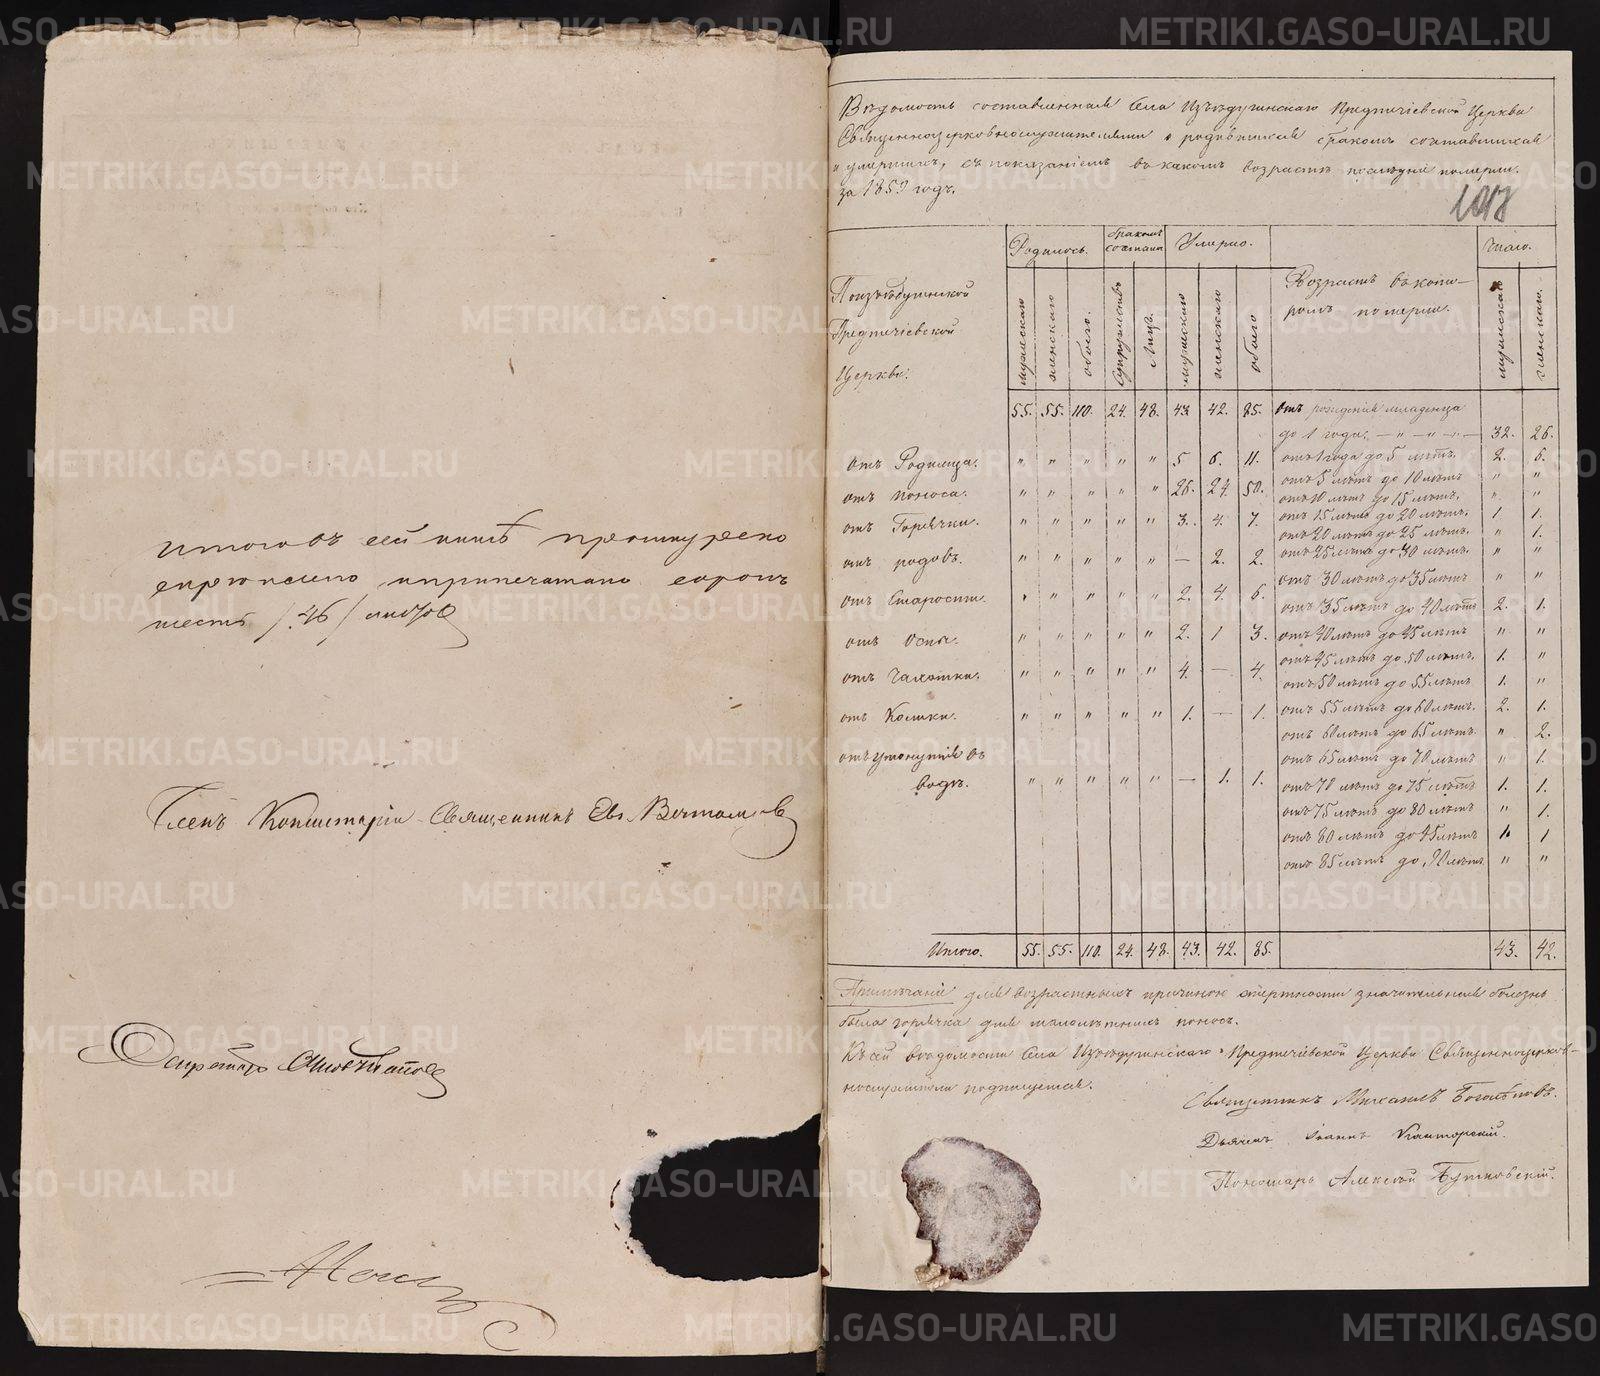 Итого въ сей книгѣ прошнуровано
скрѣплено и припечатано сорокъ
шесть /46/ листовъ
Членъ Консисторіи Священникъ Евг.
Секретарь
Вѣдомость составленная села Изъѣдугинскаго Предтечіевской Церкви
Священноцерковнослужителями о родившихся бракомъ составшихся
и умершихъ, съ показаніемъ въ какомъ возрастѣ послѣдніе померли.
за 1859 годъ.
Поизъѣдугинской
Предтечіевской
Церкви:
Родилось.
бракомъ состоялись
Умерло.
Возрастъ въ кото-
ромъ померли.
Число.
мужескаго женскаго обоего. Супружествъ Лицъ. мужескаго женскаго обоего мужескаго женскаго.
55. 55. 110. 24. 48. 43. 42. 85. отъ рожденія младенца
до 1 года. — „ — „ — 32. 26.
отъ Родимца. „ „ „ „ „ 5 6. 11. отъ 1 года до 5 лѣтъ. 2. 6.
отъ 5 лѣтъ до 10 лѣтъ „ „
отъ поноса. „ „ „ „ „ 26. 24. 50. отъ 10 лѣтъ до 15 лѣтъ. „ „
отъ 15 лѣтъ до 20 лѣтъ. 1. 1.
отъ Горячки. „ „ „ „ „ 3. 4. 7. отъ 20 лѣтъ до 25 лѣтъ. „ 1.
отъ родовъ. „ „ „ „ „ — 2. 2. отъ 25 лѣтъ до 30 лѣтъ. „ „
отъ 30 лѣтъ до 35 лѣтъ „ „
отъ Старости. „ „ „ „ „ 2. 4. 6. отъ 35 лѣтъ до 40 лѣтъ 2. 1.
отъ Оспы. „ „ „ „ „ 2. 1 3. отъ 40 лѣтъ до 45 лѣтъ „ „
отъ 45 лѣтъ до 50 лѣтъ. 1. „
отъ Чахотки. „ „ „ „ „ 4. — 4. отъ 50 лѣтъ до 55 лѣтъ 1. „
отъ Колики. „ „ „ „ „ 1. — 1. отъ 55 лѣтъ до 60 лѣтъ. 2. 1.
отъ 60 лѣтъ до 65 лѣтъ. „ 2.
отъ утонутія въ
отъ 65 лѣтъ до 70 лѣтъ „ 1.
водѣ. „ „ „ „ „ — 1. 1. отъ 70 лѣтъ до 75 лѣтъ 1. 1.
отъ 75 лѣтъ до 80 лѣтъ „ 1.
отъ 80 лѣтъ до 85 лѣтъ 1. 1
отъ 85 лѣтъ до 90 лѣтъ „ „
Итого. 55. 55. 110. 24. 48. 43. 42. 85. 43. 42.
Примѣчаніе для возрастныхъ причиною смертности значительная болѣзнь
была горячка для малолѣтнихъ поносъ.
Къ сей вѣдомости села Изъѣдугинскаго Предтечіевской Церкви Священноцерков-
нослужители подписуемся.
Священникъ Михаилъ Боголѣповъ.
Дьячекъ Іоаннъ Канторскій.
Пономарь Алексѣй Бутковскій.
METRIKI.GASO-URAL.RU